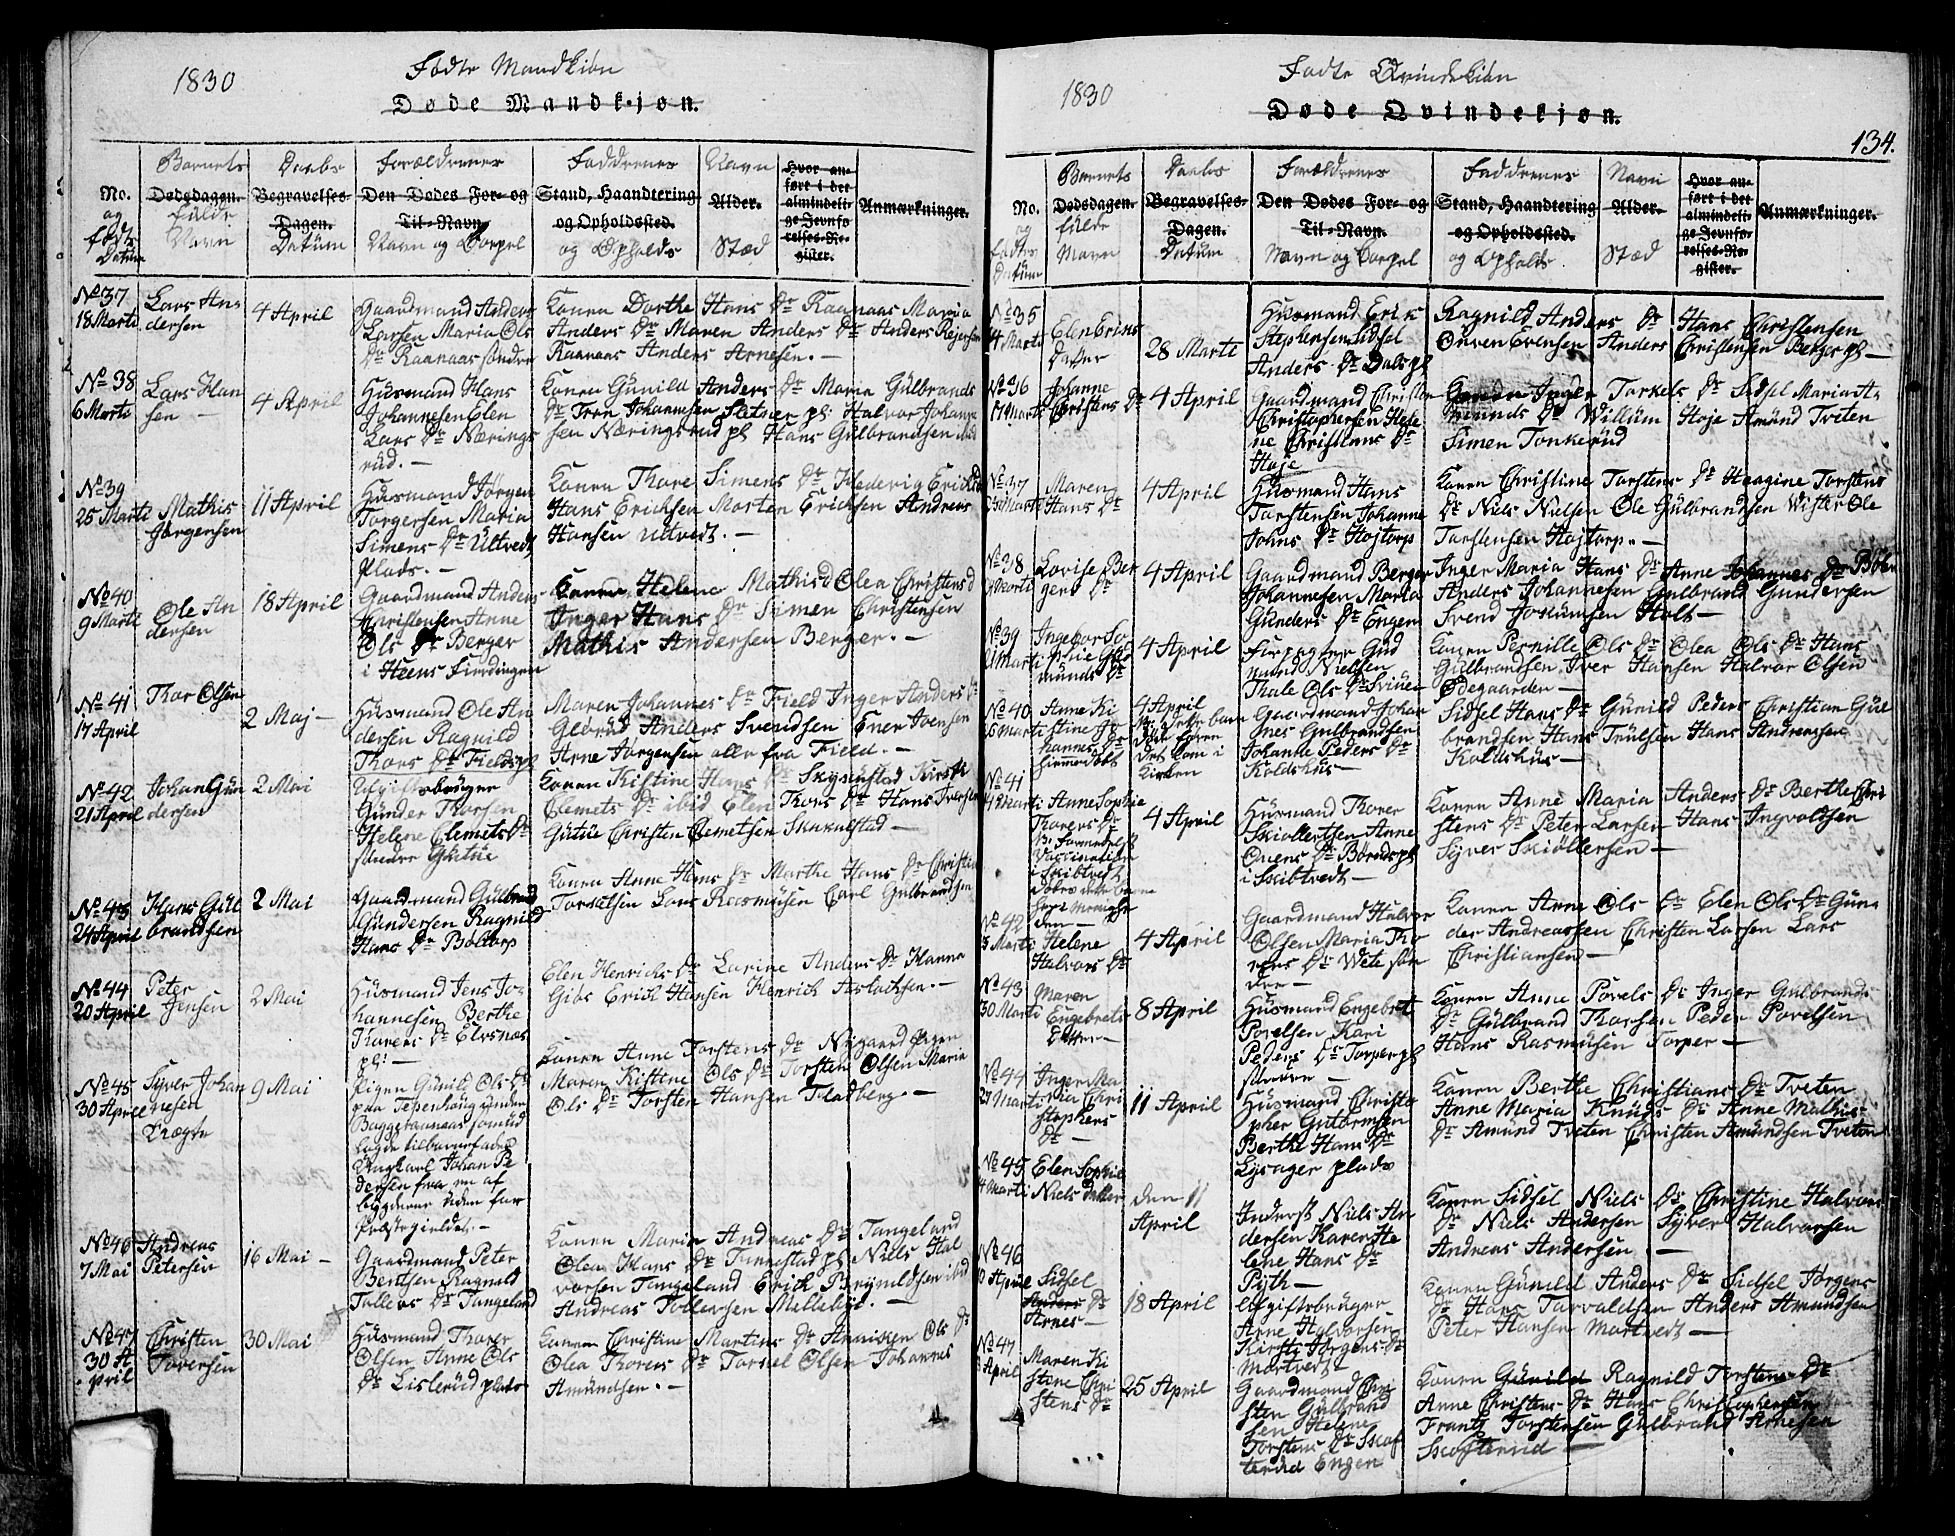 1830
Fødte Mandkiøn
Døde Mandkjøn.
No. og fødte Datum
Barnets fulde Navn
Dødsdagen.
Daabs Datum
Begravelses-Dagen.
Forældrenes Navn og Bopel
Den Dødes For- og Til-Navn.
Faddrenes
Stand, Haandtering og Opholdsted.
og Opholds
Navn
Alder.
Stæd
Hvor anført i det almindelige Jevnførelses-Register.
Anmærkninger.
No 37
18 Marti
Lars Andersen
4 April
Gaardmand Anders
Larsen Maria Ols
Dr Raanaas søndre
Konen Dorthe Hans Dr Raanaas Maria
Anders Dr Maren Anders Dr Anders Rejersen
Raanaas Anders Arnesen. —
No 38
6 Marti
Lars Hansen —
4 April
Huusmand Hans
Johannesen Elen
Lars Dr Nærings
rud. —
Konen Gunild Anders Dr Maria Gulbrands
Dr Iver Johannesen Sletner pl: Halvor Johannesen
Næringsrud pl Hans Gulbrandsen ibid
No 39
25 Marti
Mathis
Jørgensen
11 April
Huusmand Jørgen
Torgersen Maria
Simens Dr Ultvedt
plads. —
Konen Thore Simens Dr Hedevig Erichsd
Hans Erichsen Morten Erichsen Andreas
Hansen Utvedt. —
No 40
9 Marti
Ole Andersen
18 April
Gaardmand Anders
Christensen Anne
Ols Dr Berger
i Heens Fierdingen
Konen Helene Mathisd Olea Christensd
Inger Hans Dr Simen Christensen
Mathis Andersen Berger. —
No 41
17 April
Thor Olsen
2 Maj —
Huusmand Ole An
dersen Ragnild
Thors Dr Fieldspl
Maren Johannes Dr Field Inger Anders Dr
Glørud Anders Svendsen Ener Ivensen
Arne Jørgensen alle fra Field. —
No 42
21 April
Johan Gun
dersen
2 Mai
Afgiftsbruger
Gunder Thorsen
Helene Clemets Dr
søndre Gutue
Konen Kistine Hans Dr Skynnstad Kirsti
Clemets Dr ibid Elen Thors Dr Hans Iversen
Gutue Christen Clemetsen Skakulstad —
No 43
24 April
Hans Gul
brandsen
2 Mai
Gaardmand Gulbrand
Gundersen Ragnild
Hans Dr Boltorp
Konen Anne Hans Dr Marthe Hans Dr Christian
Torstelsen Lars Rasmusen Carl Gulbrandsen
No 44
20 April
Peter
Jensen
2 Mai
Huusmand Jens Jo-
hannesen Berthe
Thores Dr Elvsnes
pl: —
Elen Henrichs Dr Larine Anders Dr Hanna
Gibs Erich Hansen Henrich Aslachsen. —
No 45
30 April
Syver Johan
nesen
Uægte
9 Mai
Pigen Gunild Ols Dr
paa Tepenhaug under
Baggetaanaas som ud
lagde til barnefader
Ungkarl Johan Pe
dersen fra en af
bygderne uden for
Præstegieldet. —
Konen Anne Torstens Dr Nygaard Pigen
Maren Kistine Ols Dr Torsten Olsen Maria
Ols Dr Torsten Hansen Fladberg. —
No 46
7 Mai
Andreas
Petersen
16 Mai —
Gaardmand Peter
Bentsen Ragnild
Tollevs Dr Tangeland
Konen Maria Andreas Dr Tangeland
Olea Hans Dr Tunnestad pl Niels Hal
vorsen Tangeland Erich Brynildsen ibid
Andreas Tollevsen Mellebye. —
No 47
30 A
pril
Christen
Torersen
30 Mai
Huusmand Thorer
Olsen Anne Ols
Dr Lislerud plads
Konen Christine Martins Dr Annichen Ols Dr
Olea Thorens Dr Torkel Olsen Johannes
Amundsen. —
1830
Fødte Qvindekiøn
Døde Qvindekjøn.
134.
No. og fødte Datum
Barnets fulde Navn
Dødsdagen.
Daabs Datum
Begravelses-Dagen.
Forældrenes
Den Dødes For- og Til-Navn.
Navn og Bopel
Faddrenes
Stand, Haandtering og Opholdsted.
og Opholds
Navn
Alder.
Stæd
Hvor anført i det almindelige Jevnførelses-Register.
Anmærkninger.
No 35
4 Marti
Elen Erics
Datter
28 Marti
Huusmand Erik
Stephensen Sidsel
Anders Dr Dalspl
Ragnild Anders Dr Hans Christensen
Onven Evensen Anders Christensen Berger pl —
No 36
17 Marti
Johanne
Christens Dr
4 April
Gaardmand Christen
Christophersen Hele
ne Christians Dr
Høje
Konen Inger Torkels Dr Sidsel Maria A-
munds Dr Willum Høje Amund Tveten
Simen Tonkerud
No 37
Marti
Maren
Hans Dr
4 April
Huusmand Hans
Torstensen Johanne
Johns Dr Højtorp
Konen Christine Torstens Dr Haagine Torstens
Dr Niels Nielsen Ole Gulbrandsen Wister Ole
Torstensen Højtorp. —
No 38
Marti
Lovise Ber
gers Dr
4 April
Gaardmand Berger
Johannesen Maria
Gunders Dr Engen
Inger Maria Hans Dr Anne Johannes Dr Bøhn
Anders Johannesen Gulbrand Gundersen
Svend Joramsen Holt —
No 39
21 Marti
Ingebor So
phie Gud
munds Dr
4 April
Forpagter Gud
mund Nielsen
Thale Ols Dr Sviner
Konen Pernille Ols Dr Olea Ols Dr Hans
Gulbrandsen Iver Hansen Halvor Olsen
Ødegaarden —
No 40
6 Marti
Anne Ki
stine Jo
hannes Dr
hiemmedøbt
4 April
NB: Dette barn
døde føren
det kom i
Kirken
Gaardmand Johan
nes Gulbrandsen
Johanne Peders Dr
Koldshus —
Sidsel Hans Dr Gunild Peders Christian Gul
brandsen Hans Trulsen Hans Andreassen
Koldshus —
No 41
Marti
Anne Sophie
Thorers Dr
NB. formedelst
Vaccination
i Skibtvedt
4 April
Huusmand Thorer
Skiøllertsen Anne
Onens Dr Børudspl
i Skibtvedt —
Konen Anne Maria Anders Dr Berthe Chri
stens Dr Peter Larsen Hans Ingvoltsen
Syver Skiøllersen —
No 42
3 Marti
Helene
Halvors Dr
4 April
Gaardmand Halvor
Olsen Maria Tho
rers Dr Wete søn
dre —
Konen Anne Ols Dr Elen Ols Dr Gun-
der Andreassen Christen Larsen Lars
Christiansen —
No 43
30 Marti
Maren
Engebrets
Datter —
8 April
Huusmand Engebret
Povelsen Kari
Peders Dr Torper pl
søndre —
Konen Anne Povels Dr Inger Gulbrands
Dr Gulbrand Thorsen Peder Povelsen
Hans Rasmusen Torper —
No 44
27 Marti
Inger Ma
ria Chri
stophers
Dr —
11 April
Huusmand Christo
pher Gutormsen
Berthe Hans Dr
Lysager plads
Konen Berthe Christians Dr Tveten
Anne Maria Knuds Dr Anne Mathis-
Dr Amund Tveten Christen Amundsen Tveten
No 45
4 Marti
Elen Sophie
Niels datter
den 11
April
Inderst Niels An
dersen Karen He
lene Hans Dr
Pyth —
Konen Sidsel Niels Dr Christine Halvors
Dr Niels Andersen Syver Halvorsen
Andreas Andersen —
No 46
April
Sidsel
Anders Dr
Arnes —
18 April
Afgiftsbruger
Arne Halvorsen
Kirsti Jørgens Dr
Mortvedt —
Konen Gunild Anders Dr Sidsel Jørgens
Dr Hans Torvaldsen Anders Amundsen
Peter Hansen Mortvedt —
No 47
April
Maren Ki
stene Chri
stens Dr
25 April
Gaardmand Chri
sten Gulbrand
sen Helene
Torstens Dr Skof
terud Engen
Konen Gunild Ragnild Torstens Dr
Anne Christens Dr Hans Christophersen
Frantz Torstensen Gulbrand Arnesen
Skofterud —